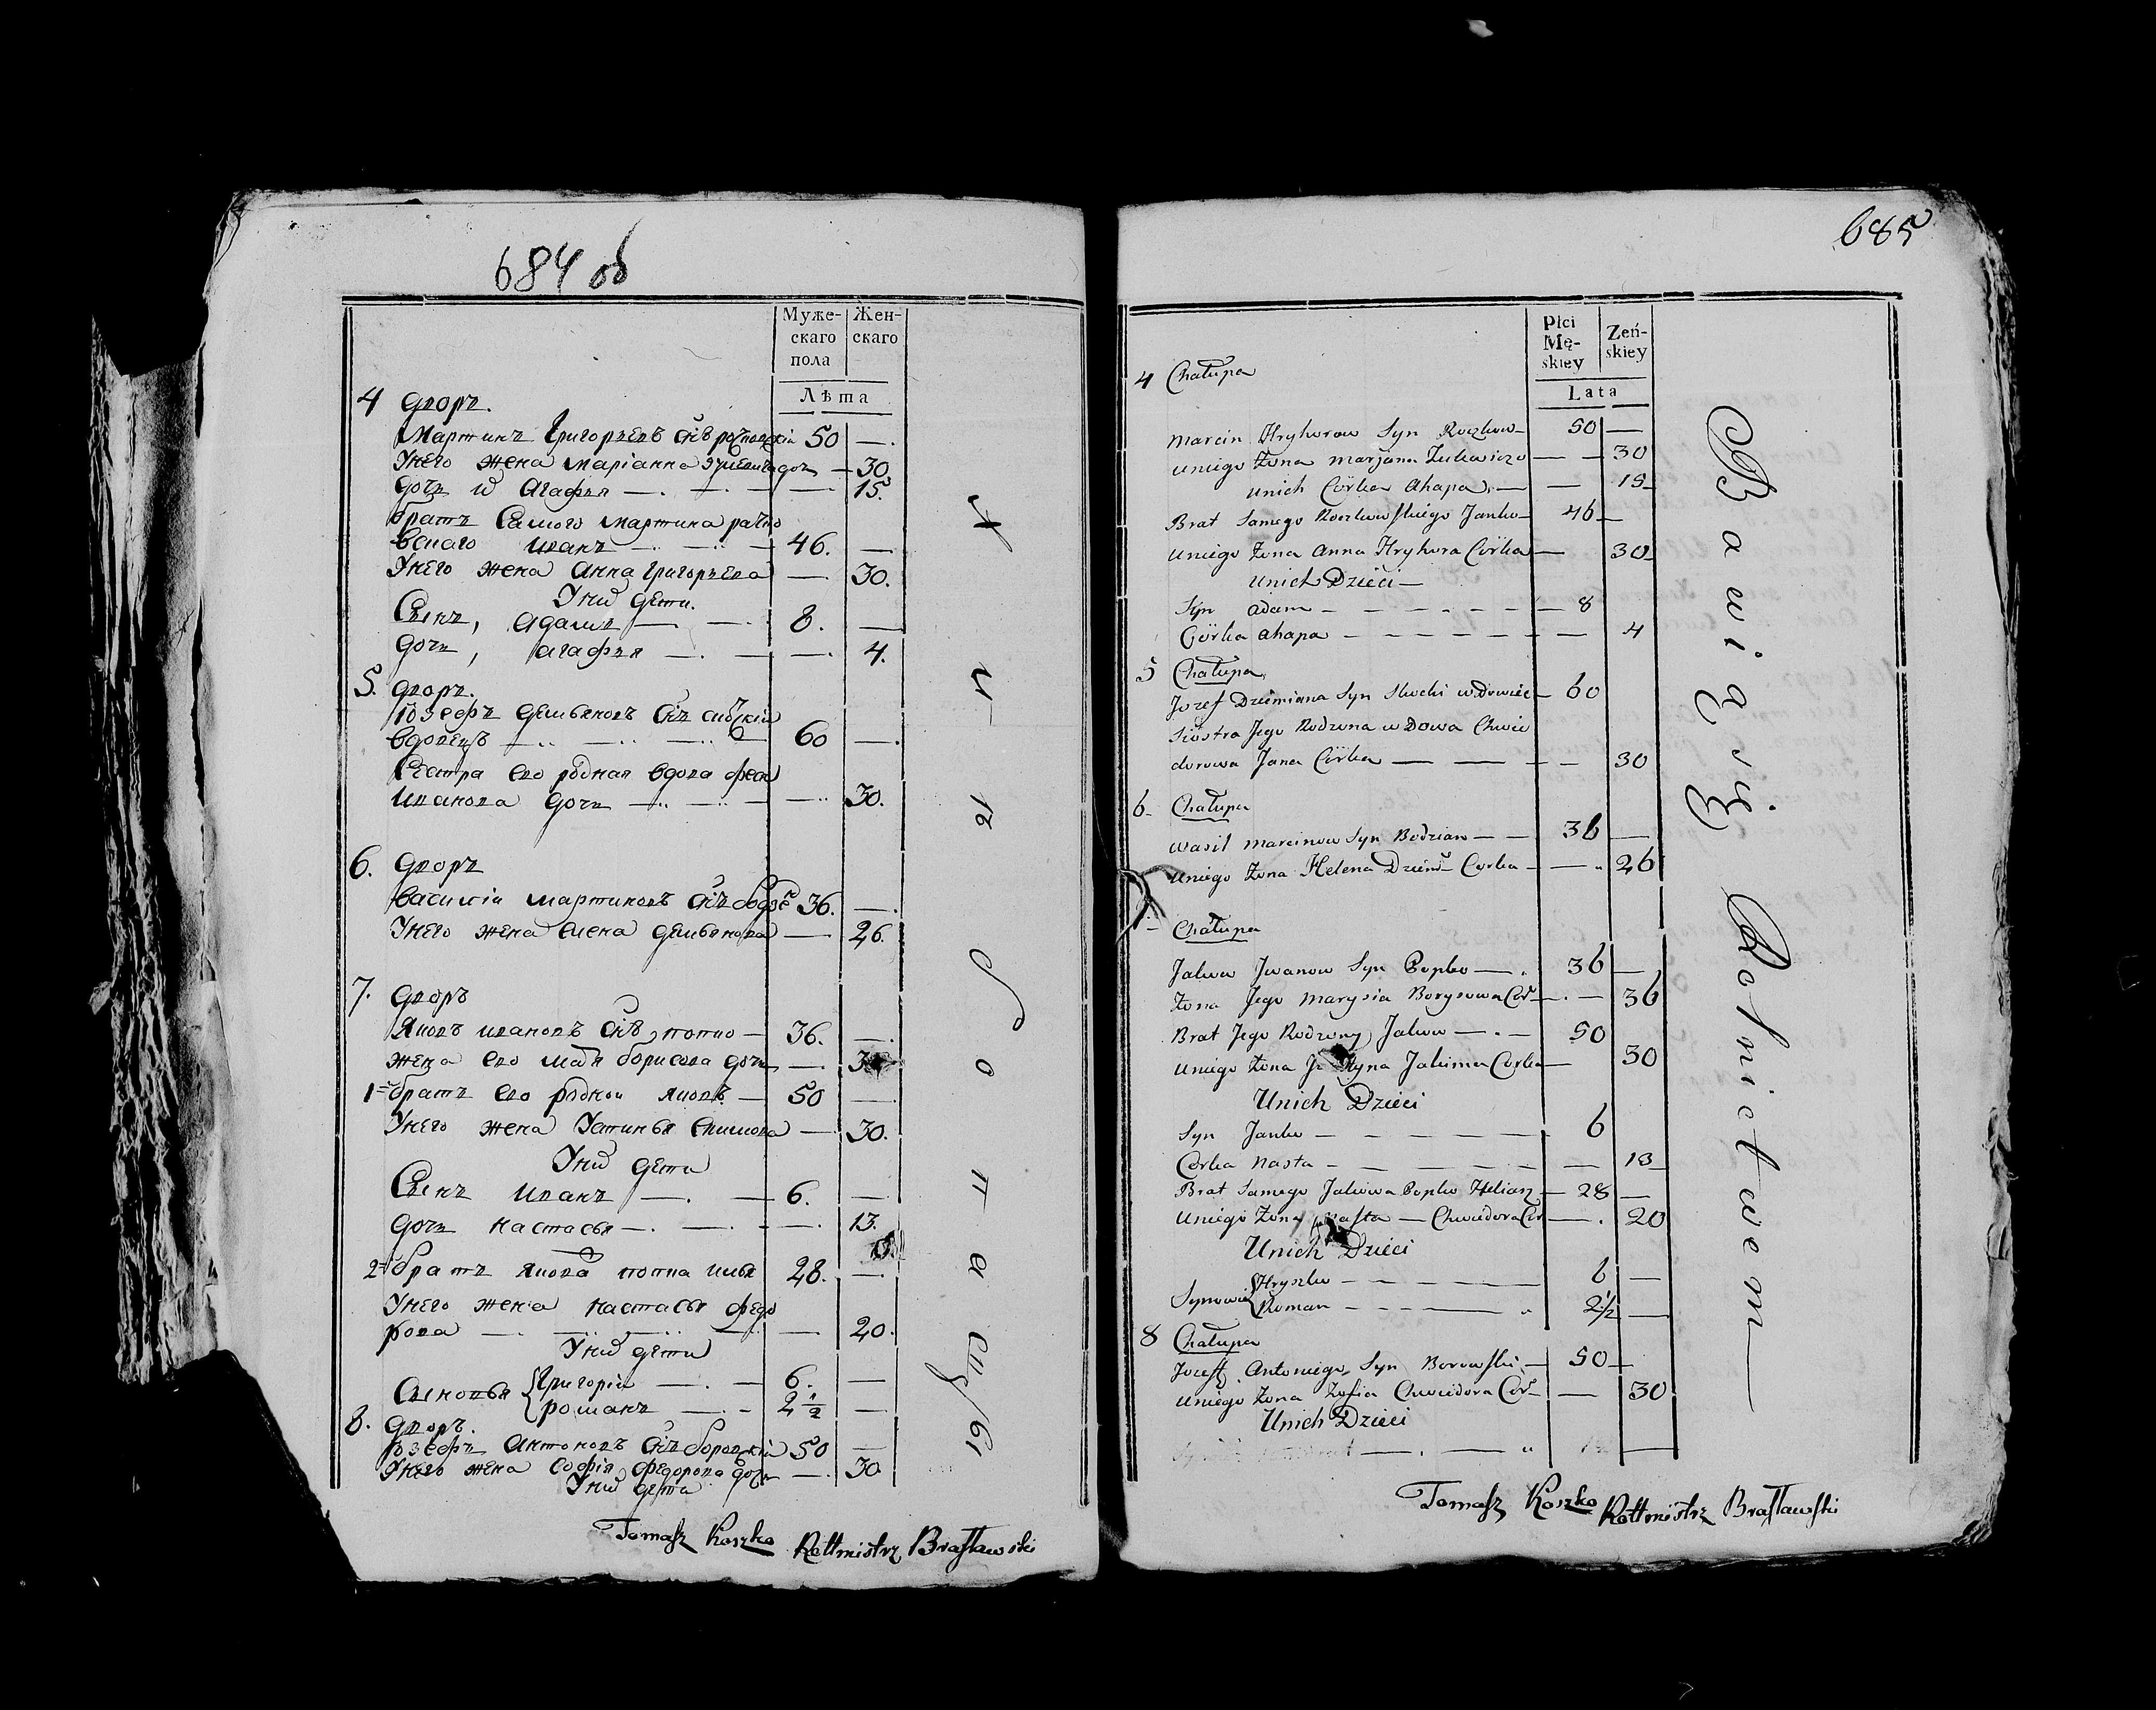 684 об
Муже-
скаго
пола
Жен-
скаго
Лѣта
4 дворъ.
Мартинъ Григорьевъ снъ 50 —.
Унего жена Маріанна — 30.
дочь Агафья —. —. — — 15.
братъ Самого Мартина
Иванъ — — — 46. —
Унего жена Анна Григорьева — 30.
Уних дети.
Сынъ, Адамъ — — 8. —
дочь, Агафья —. — —. 4.
5. дворъ.
Іозефъ Демьяновъ снъ
вдовецъ — — — 60 —.
Сестра его родная вдова
Иванова дочь — — — 30.
6. дворъ
Василий Мартиновъ снъ 36. —.
Унего жена Елена Демьянова — 26.
7. дворъ
Яковъ Ивановъ снъ попко — 36. —.
жена его Борисова дочь —.
1 братъ его родной Яковъ — 50 —.
Унего жена Устинья Екимова — 30.
Уних дети
Сынъ Иванъ —. — 6. —.
дочь Настасья —. —. — —. 13.
2 братъ Якова попка Илья 28. —.
Унего жена Настасья Федо
рова — — — — 20.
Уних дети
Сыновья { Григорій —. — 6. —
Романъ —. — 2 1/2 —
8. дворъ.
Іозефъ Антоновъ снъ Боровскій 50 —
Унего жена Софія Федорова дочь —. 30
Уних дети
Tomasz Koszko Rottmistrz Brasławski
685
Płci
Mę-
skiey
Żeń-
skiey
Lata
4 Chałupa
Marcin Hryhorow Syn Roczkow— 50 —
uniego Żona Marjana — — 30
unich Córka Ahapa — — 15
Brat Samego Roczkowskiego Janko— 46 —
uniego Żona Anna Hryhora Córka — 30
unich Dzieci —
Syn Adam — — — — — — — 8
Córka Ahapa — — — — — — — 4
5 Chałupa
Jozef Dziemiana Syn Słucki wdowiec — 60
Siostra Jego Rodzona wdowa Chwie
dorowa Jana Córka — — — — 30
6 Chałupa
Wasil Marcinow Syn Bodzian — — 36 —
uniego Żona Helena Dziem— Corka — — 26
Chałupa
Jakow Jwanow Syn Popko — 36 —
Żona Jego Marysia Borysowa Cor — — 36
Brat Jego Rodzony Jakow — — 50
uniego Żona Jakima Corka — 30
Unich Dzieci
Syn Janko — — — — — 6
Corka Nasta — — — — — — 13
Brat Samego Jakowa Popko Heliasz — 28 —
uniego Żona Nasta — Chwiedora Cor — 20
Unich Dzieci
Synowie { Hryszko — — — — — 6 —
Roman — — — — — 2 1/2 —
8 Chałupa
Jozeff Antoniego Syn Borowski — 50 —
uniego Żona Zofia Chwiedora Cor — — 30
Unich Dzieci
Tomasz Koszko Rottmistrz Brasławski
Bawiący się Rolnictwem